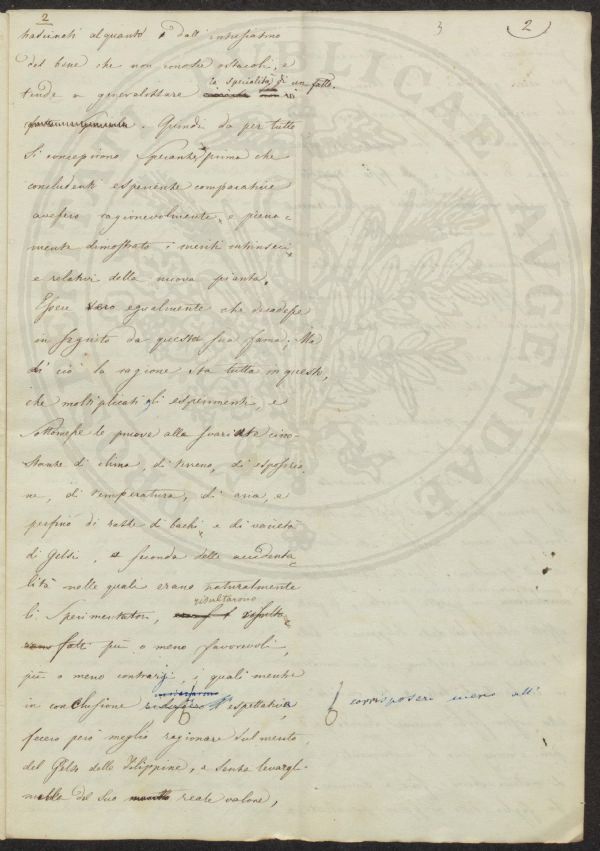 2
3
2
trascinati alquanto dall'entusiasmo
del bene che non conosce ostacoli, e
tende a generalizzare la specialità di un fatto.
Quindi da per tutto
si concepirono speranze, prima che
concludenti esperienze comparative
avessero ragionevolmente, e piena-
mente dimostrato i meriti intrinseci,
e relativi della nuova pianta.
Essere vero egualmente che decadesse
in seguito da questa sua fama; Ma
di ciò la ragione sta tutta in questo,
che moltiplicati gli esperimenti, e
sottomesse le prove alla svariate circo-
stanze di clima, di terreno, di esposizio-
ne, di temperatura, di aria, e
perfino di razze di bachi, e di varietà
di Gelsi, a seconda delle accidenta-
lità nelle quali erano naturalmente
li Sperimentatori, risultarono
fatti più o meno favorevoli,
più o meno contrarj, i quali mentre
in conclusione espettativa
corrisposero meno all'
fecero però meglio ragionare sul merito
del Gelso delle Filippine, e senza levargli
nulla del suo reale valore,